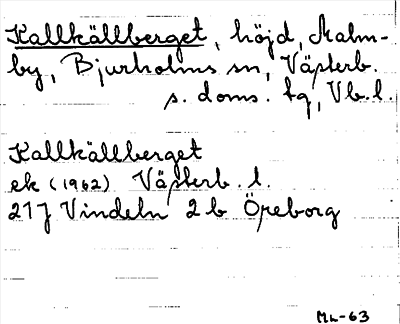 Kallkällberget, höjd, Malm-
by, Bjurholms sn, Västerb.
s. doms. tg, Vb. l.
Kallkällberget
ek (1962) Västerb. l.
21J Vindeln 2b Öreborg
ML-63